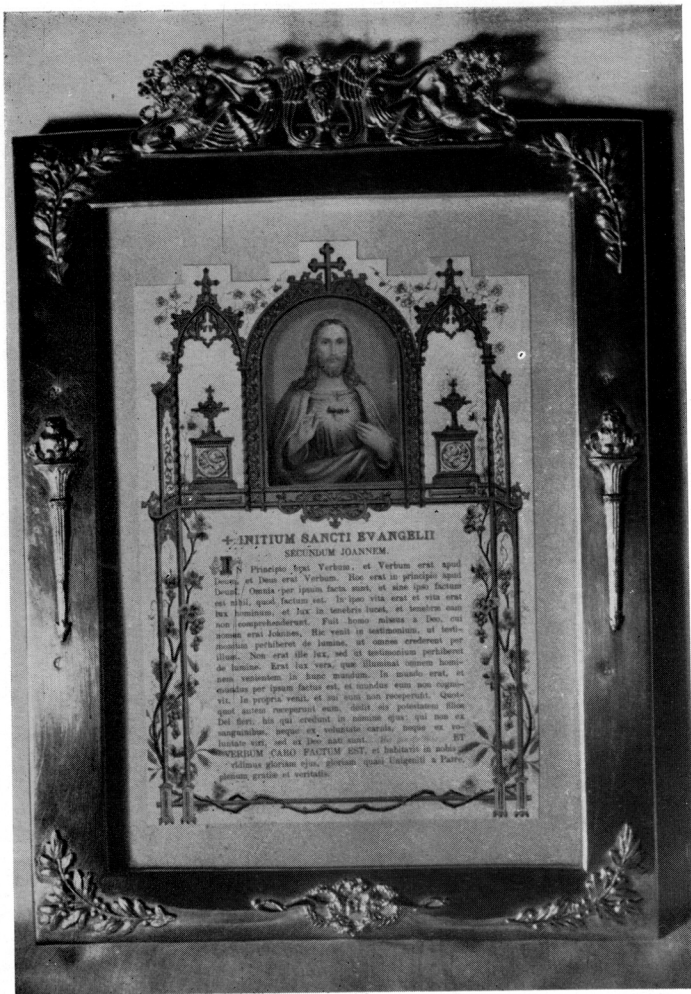 + INITIUM SANCTI EVANGELII
SECUNDUM JOANNEM.
IN Principio erat Verbum, et Verbum erat apud
Deum, et Deus erat Verbum. Hoc erat in principio apud
Deum. Omnia per ipsum facta sunt, et sine ipso factum
est nihil, quod factum est. In ipso vita erat et vita erat
lux hominum, et lux in tenebris lucet, et tenebræ eam
non comprehenderunt. Fuit homo missus a Deo, cui
nomen erat Joannes, Hic venit in testimonium, ut testi-
monium perhiberet de lumine, ut omnes crederent per
illum. Non erat ille lux, sed ut testimonium perhiberet
de lumine. Erat lux vera, quæ illuminat omnem homi-
nem venientem in hunc mundum. In mundo erat, et
mundus per ipsum factus est, et mundus eum non cogno-
vit. In propria venit, et sui eum non receperunt. Quot-
quot autem receperunt eum, dedit eis potestatem filios
Dei fieri, his qui credunt in nomine ejus: qui non ex
sanguinibus, neque ex voluntate carnis, neque ex vo-
luntate viri, sed ex Deo nati sunt. ET
VERBUM CARO FACTUM EST, et habitavit in nobis
vidimus gloriam ejus, gloriam quasi Unigeniti a Patre,
plenum gratiæ et veritatis.